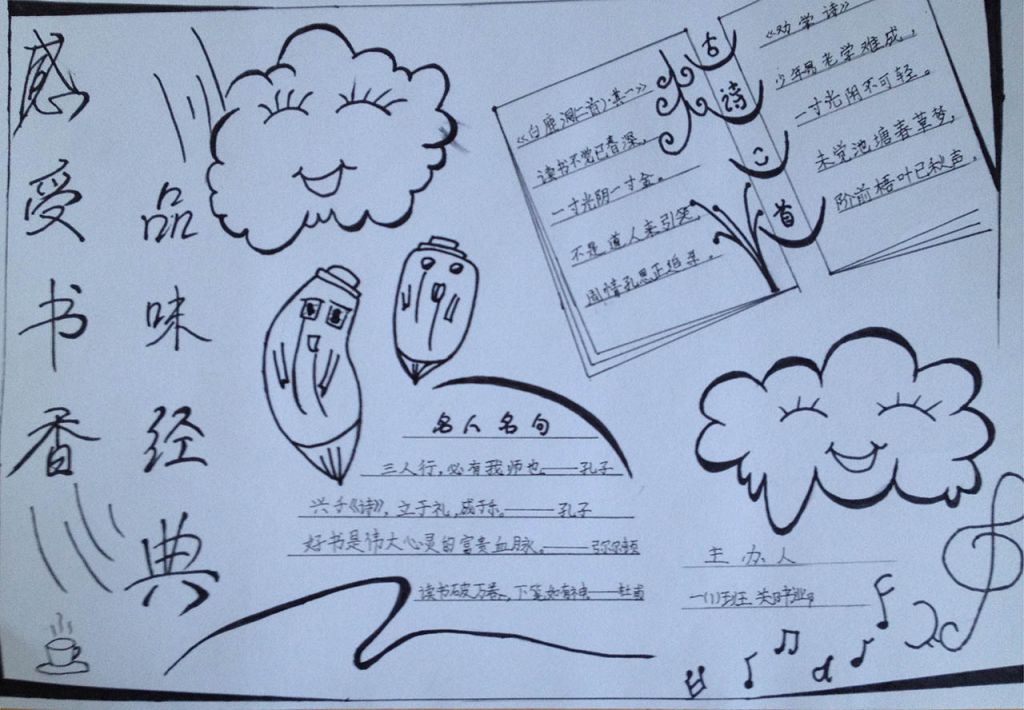 感受书香
品味经典
古诗二首
《白鹿洞二首·其一》
读书不觉已春深，
一寸光阴一寸金。
不是道人来引笑，
周情孔思正追寻。
《劝学诗》
少年易老学难成，
一寸光阴不可轻。
未觉池塘春草梦，
阶前梧叶已秋声。
名人名句
三人行，必有我师也。——孔子
兴于《诗》，立于礼，成于乐。——孔子
好书是伟大心灵的富贵血脉。——弥尔顿
读书破万卷，下笔如有神——杜甫
主办人
一(1)班